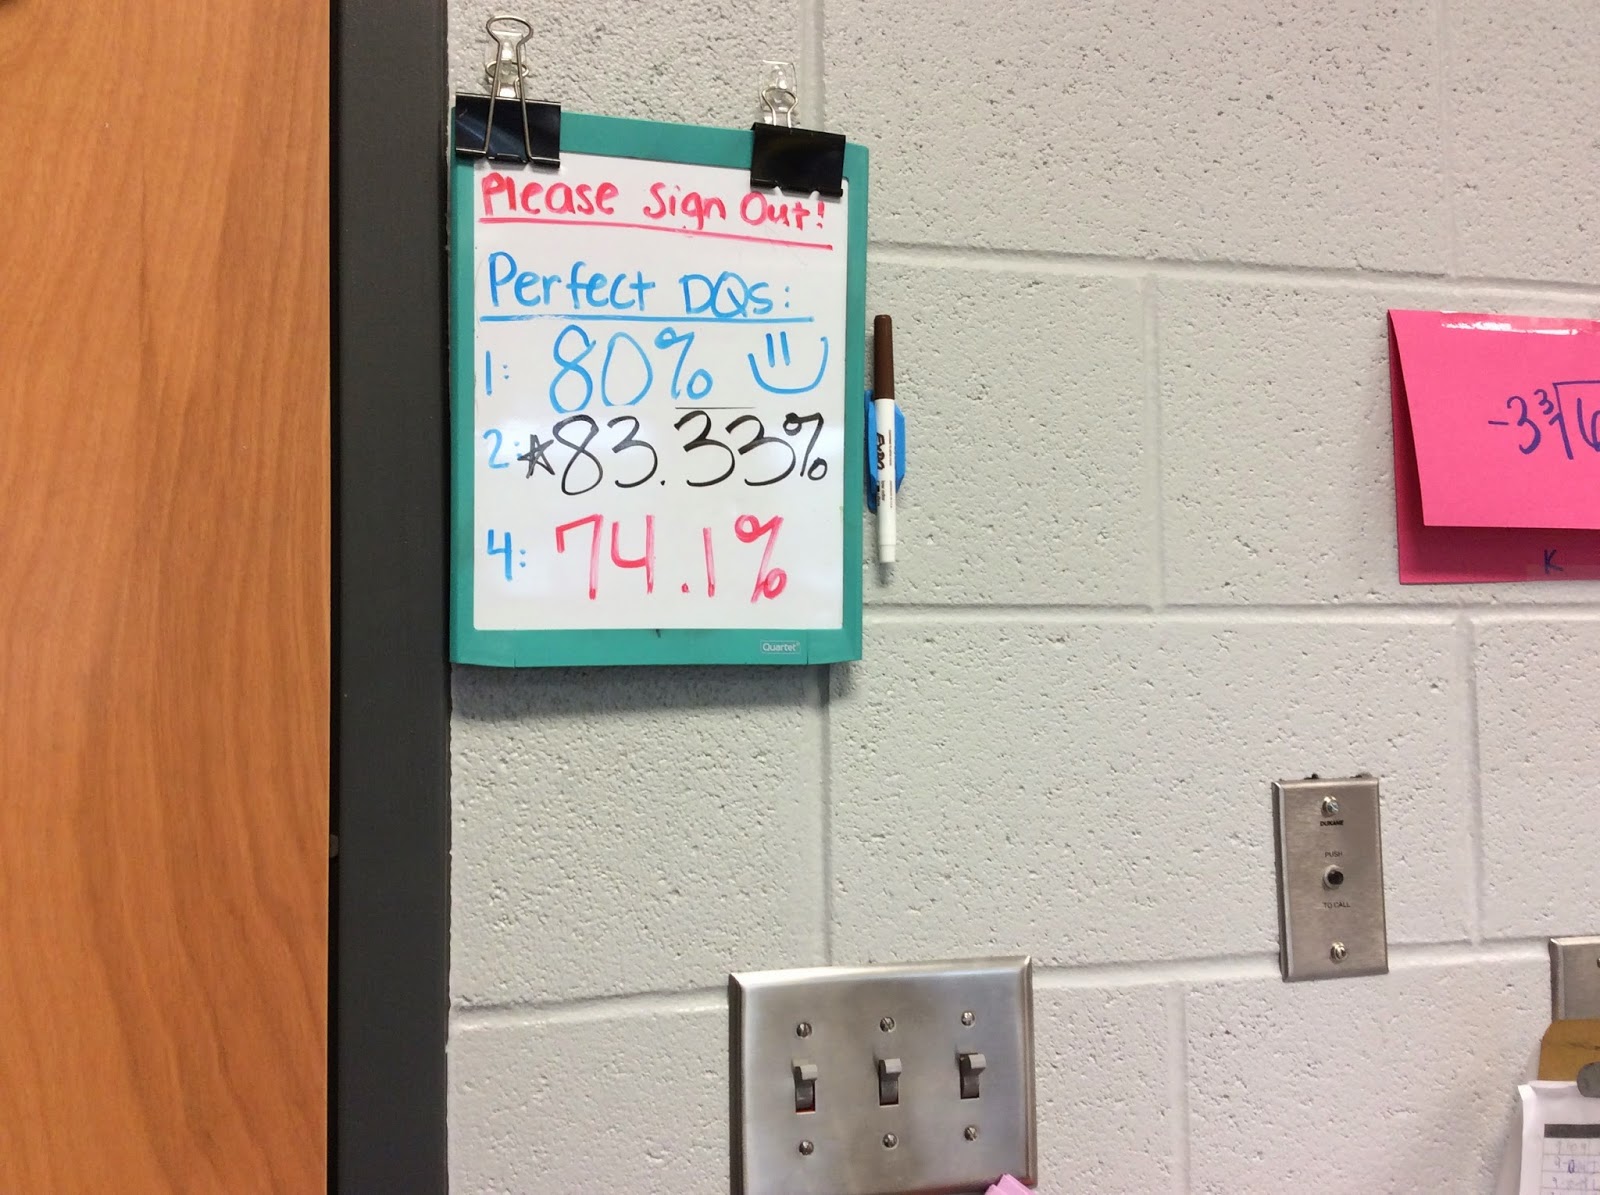 Please Sign Out!
Perfect DQs:
1: 80%
2: ☆83.33%
4: 74.1%
Quartet
EXPO
-3∛6
K
DUKANE
PUSH
TO CALL